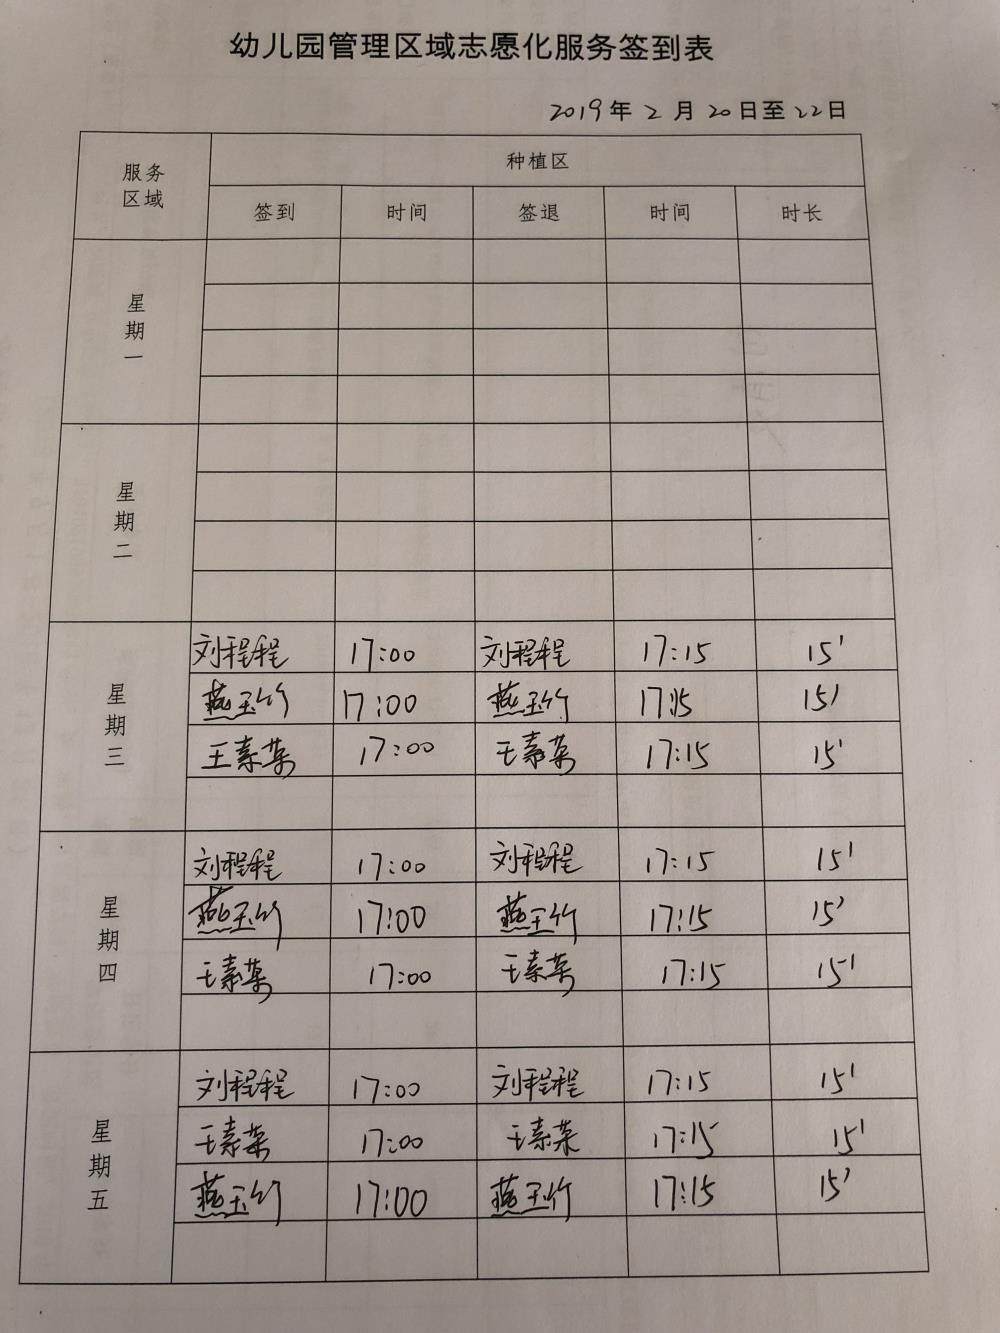 幼儿园管理区域志愿化服务签到表
2019年2月20日至22日
服务区域 种植区
签到 时间 签退 时间 时长
星期一
星期二
星期三
刘程程 17:00 刘程程 17:15 15'
燕玉竹 17:00 燕玉竹 17:15 15'
王素菜 17:00 王素菜 17:15 15'
星期四
刘程程 17:00 刘程程 17:15 15'
燕玉竹 17:00 燕玉竹 17:15 15'
王素菜 17:00 王素菜 17:15 15'
星期五
刘程程 17:00 刘程程 17:15 15'
王素菜 17:00 王素菜 17:15 15'
燕玉竹 17:00 燕玉竹 17:15 15'